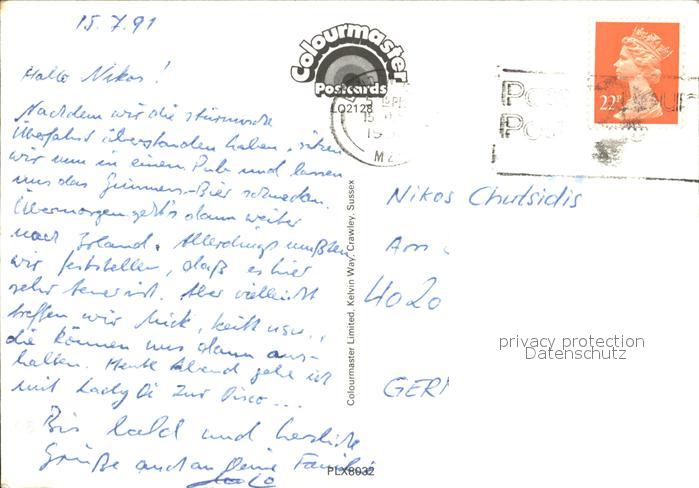 15.7.91
Hallo Nikos!
Nachdem wir die stürmische
Überfahrt überstanden haben, sitzen
wir nun in einem Pub und lassen
uns das Guinness-Bier schmecken.
Übermorgen geht's dann weiter
nach Irland. Allerdings mußten
wir feststellen, daß es hier
sehr teuer ist. Aber vielleicht
treffen wir Mick, Keith usw.,
die können uns dann aus-
halten. Heute Abend gehe ich
mit Lady Di zur Disco...
Bis bald und herzliche
Grüße auch an Deine Familie
Colourmaster
Postcards
Q2128
22P
Colourmaster Limited, Kelvin Way, Crawley, Sussex
Nikos Chutsidis
Am
4020
GER
privacy protection
Datenschutz
PLX8032